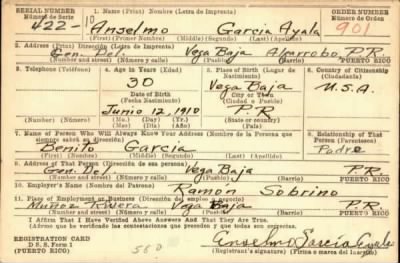 SERIAL NUMBER 1. Print Name (Nombre) (Letra de Imprenta) ORDER NUMBER
Número de Serie Número de Orden
422-10 Anselmo García Ayala 901
(First) (Primer Nombre) (Middle) (Segundo) (Last) (Apellido)
2. Address (Print) Dirección (Letra de Imprenta)
Gen. Del. Vega Baja Algarrobo P.R.
(Number and street) (Número y calle) (Town) (Ciudad) PUERTO RICO
3. Telephone (Teléfono) 4. Age in Years (Edad) 5. Place of Birth (Lugar de Nacimiento) 6. Country of Citizenship (Ciudadanía)
30 Vega Baja U.S.A.
Date of Birth (Fecha Nacimiento) City or Town (Ciudad o Pueblo)
Junio 12, 1910 P.R.
(Number) (Núm.) (Mo.) (Day) (Día) (Yr.) (Año) (State or county) (País)
7. Name of Person Who Will Always Know Your Address (Nombre de la Persona que siempre sabrá su dirección) 8. Relationship of That Person (Parentesco)
Benito García Padre
(First) (Nombre) (Middle) (Segundo) (Last) (Apellido)
9. Address of That Person (Dirección de esa persona)
Gen. Del Vega Baja P.R.
(Number and street) (Número y calle) (Town) (Ciudad) PUERTO RICO
10. Employer's Name (Nombre del Patrono)
Ramón Sobrino
11. Place of Employment or Business (Dirección del empleo o negocio)
Muñoz Rivera Vega Baja P.R.
(Number and street) (Número y calle) (Town) (Ciudad) PUERTO RICO
I Affirm That I Have Verified Above Answers And That They Are True.
(Afirmo que he verificado las contestaciones que preceden y que son verdad)
REGISTRATION CARD
D. S. S. Form 1
(Patrones) 560 Anselmo García Ayala
(Registrant's signature) (Firma o marca del inscrito)